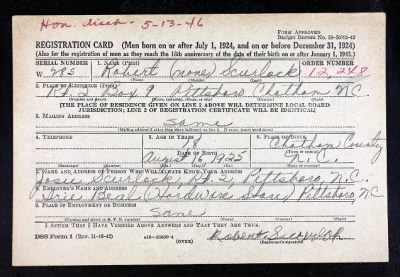 Hon. disch - 5-13-46
FORM APPROVED
Budget Bureau No. 33-R012-42
REGISTRATION CARD (Men born on or after July 1, 1924, and on or before December 31, 1924)
(Also for the registration of men as they reach the 18th anniversary of the date of their birth on or after January 1, 1943.)
SERIAL NUMBER 1. NAME (Print) ORDER NUMBER
W 285 Robert (none) Scurlock 12,248
(First) (Middle) (Last)
2. PLACE OF RESIDENCE (Print)
Rt. 2 Box 9 Pittsboro Chatham N.C.
[THE PLACE OF RESIDENCE GIVEN ON LINE 2 ABOVE WILL DETERMINE LOCAL BOARD
JURISDICTION; LINE 2 OF REGISTRATION CERTIFICATE WILL BE IDENTICAL]
3. MAILING ADDRESS
Same
4. TELEPHONE 5. AGE IN YEARS 6. PLACE OF BIRTH
18 Chatham County
DATE OF BIRTH
August 16 1925 N.C.
7. NAME AND ADDRESS OF PERSON WHO WILL ALWAYS KNOW YOUR ADDRESS
Scurlock, Rt. 2, Pittsboro, N.C.
8. EMPLOYER'S NAME AND ADDRESS
(Hardware Store) Pittsboro, N.C.
9. PLACE OF EMPLOYMENT OR BUSINESS
Same
I AFFIRM THAT I HAVE VERIFIED ABOVE ANSWERS AND THAT THEY ARE TRUE.
DSS Form 1 (Rev. 11-16-42) (OVER) Robert Scurlock
(Registrant's signature)